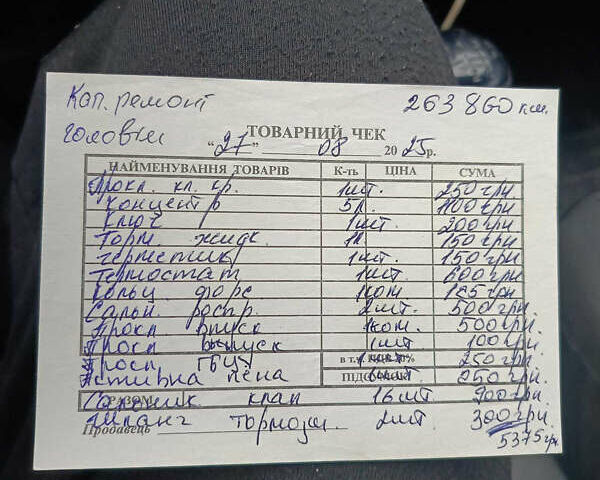 Кап. ремонт 263 860 км.
головки
ТОВАРНИЙ ЧЕК
"27" 08 2025р.
НАЙМЕНУВАННЯ ТОВАРІВ К-ть ЦІНА СУМА
Прокл. кл. кр. 1шт. 250 грн
концентр 5л. 1100 грн
ключ 1шт. 200 грн
Торм. жидк. 1л 150 грн
герметик 1шт. 150 грн
Термостат 1шт. 600 грн
кольц форс 1ком 185 грн
Сальн. роспр. 2шт. 500 грн
Прокл впуск 1ком. 500 грн
Прокл выпуск 1шт 100 грн
Прокл ГБЦ 250 грн
Активна пена 250 грн.
Сальник клап 16шт 900 грн.
Шланг тормозн. 2шт 300 грн.
Продавець 5375 грн